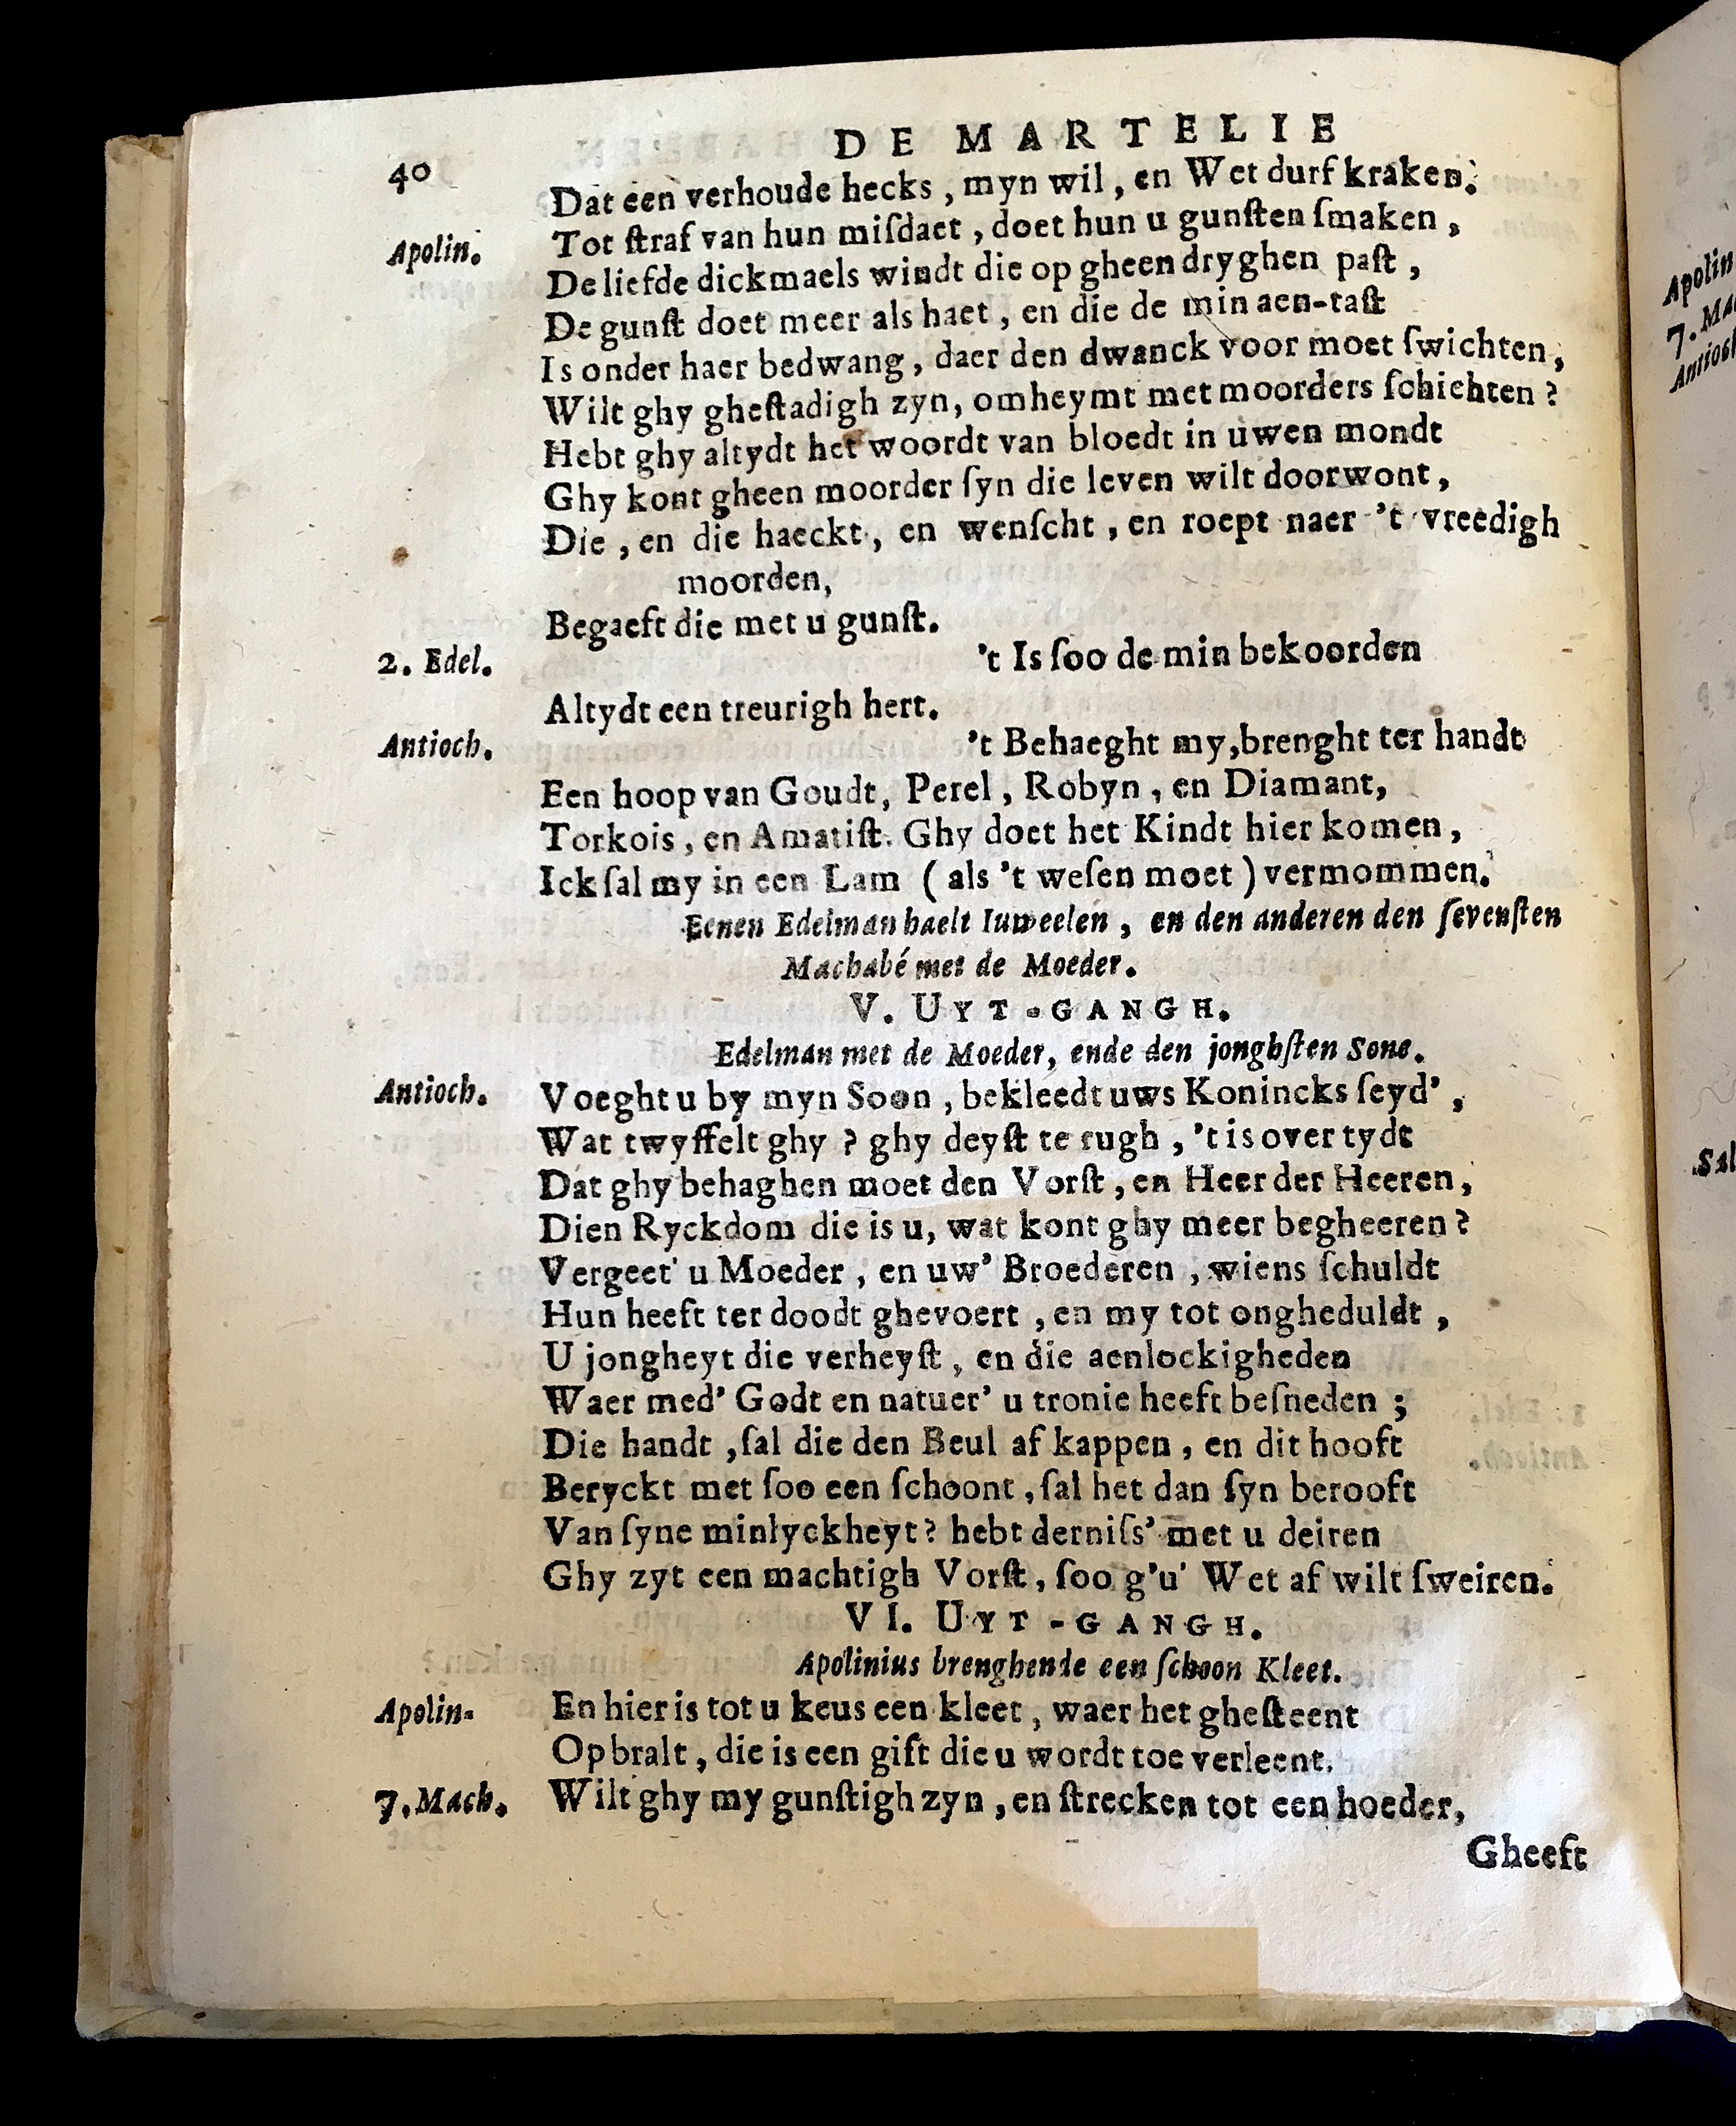 DE MARTELIE
40
Dat een verhoude hecks, myn wil, en Wet durf kraken.
Apolin. Tot ſtraf van hun miſdaet, doet hun u gunſten ſmaken,
De liefde dickmaels windt die op gheen dryghen paſt,
De gunſt doet meer als haet, en die de min aen-taſt
Is onder haer bedwang, daer den dwanck voor moet ſwichten,
Wilt ghy gheſtadigh zyn, omheymt met moorders ſchichten?
Hebt ghy altydt het woordt van bloedt in uwen mondt
Ghy kont gheen moorder ſyn die leven wilt doorwont,
Die, en die haeckt, en wenſcht, en roept naer 't vreedigh
moorden,
Begaeft die met u gunſt.
2. Edel. 't Is ſoo de min bekoorden
Altydt een treurigh hert.
Antioch. 't Behaeght my, brenght ter handt
Een hoop van Goudt, Perel, Robyn, en Diamant,
Torkois, en Amatiſt. Ghy doet het Kindt hier komen,
Ick ſal my in een Lam (als 't weſen moet) vermommen.
Eenen Edelman haelt Iuweelen, en den anderen den ſevenſten
Machabé met de Moeder.
V. UYT-GANGH.
Edelman met de Moeder, ende den jonghſten Sone.
Antioch. Voeght u by myn Soon, bekleedt uws Konincks ſeyd',
Wat twyffelt ghy? ghy deyſt te rugh, 't is over tydt
Dat ghy behaghen moet den Vorſt, en Heer der Heeren,
Dien Ryckdom die is u, wat kont ghy meer begheeren?
Vergeet u Moeder, en uw' Broederen, wiens ſchuldt
Hun heeft ter doodt ghevoert, en my tot ongheduldt,
U jongheyt die verheyſt, en die aenlockigheden
Waer med' Godt en natuer' u tronie heeft beſneden;
Die handt, ſal die den Beul af kappen, en dit hooft
Beryckt met ſoo een ſchoont, ſal het dan ſyn berooft
Van ſyne minlyckheyt? hebt derniſs' met u deiren
Ghy zyt een machtigh Vorſt, ſoo g'u' Wet af wilt ſweiren.
VI. UYT-GANGH.
Apolinius brenghende een ſchoon Kleet.
Apolin- En hier is tot u keus een kleet, waer het gheſteent
Op bralt, die is een gift die u wordt toe verleent.
7. Mach. Wilt ghy my gunſtigh zyn, en ſtrecken tot een hoeder,
Gheeft